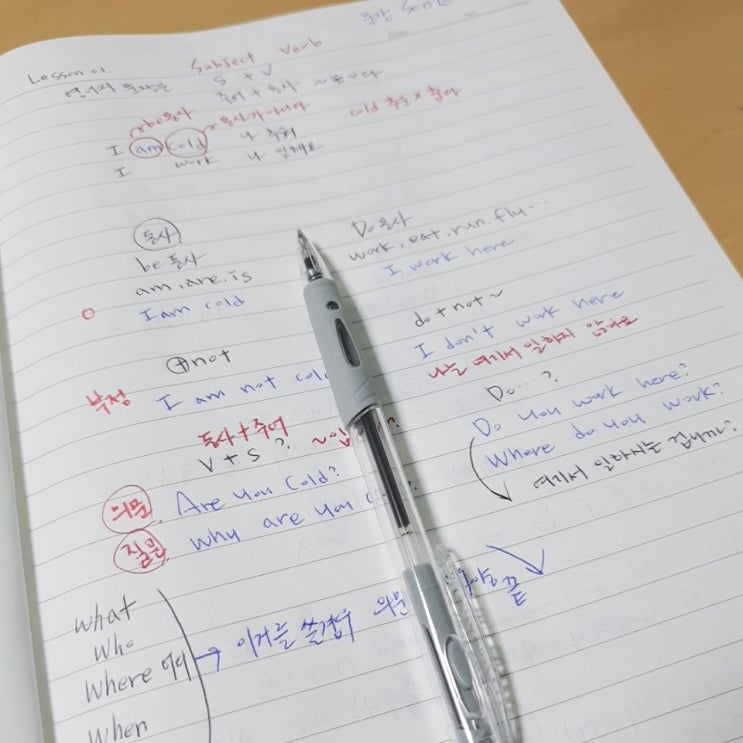 문장 Sente
Lesson 01.
Subject Verb
영어의 문장은 S + V
주어 + 동사
be동사 동사가 아니다 cold 추운 x 춥다
I am cold 나 추워
I work 나 일해요
동사
be동사
am, are, is
I am cold
Do동사
work, eat, run, fly...
I work here
+not
부정 I am not cold
do + not ~
I don't work here
나는 여기서 일하지 않아요
동사 + 주어
V + S ?
의문 Are you cold?
질문 Why are you
Do...?
Do you work here?
Where do you work?
what
who
Where 어디
When
이거를 쓸경우 의문 끝